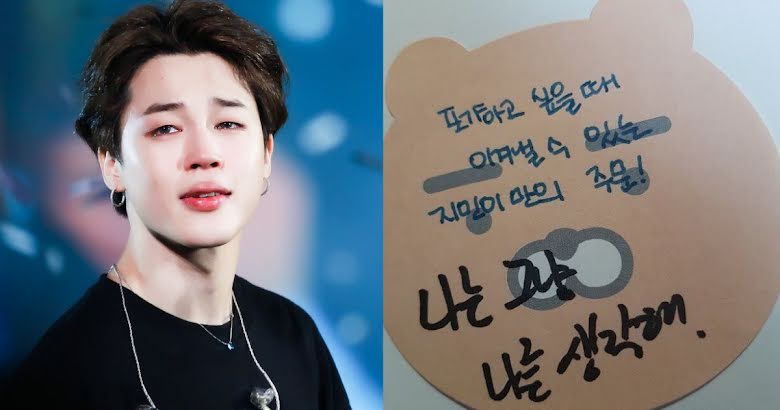 포기하고 싶을 때
이겨낼 수 있는
지민이 만의 주문!
나는 그냥
나를 생각해.